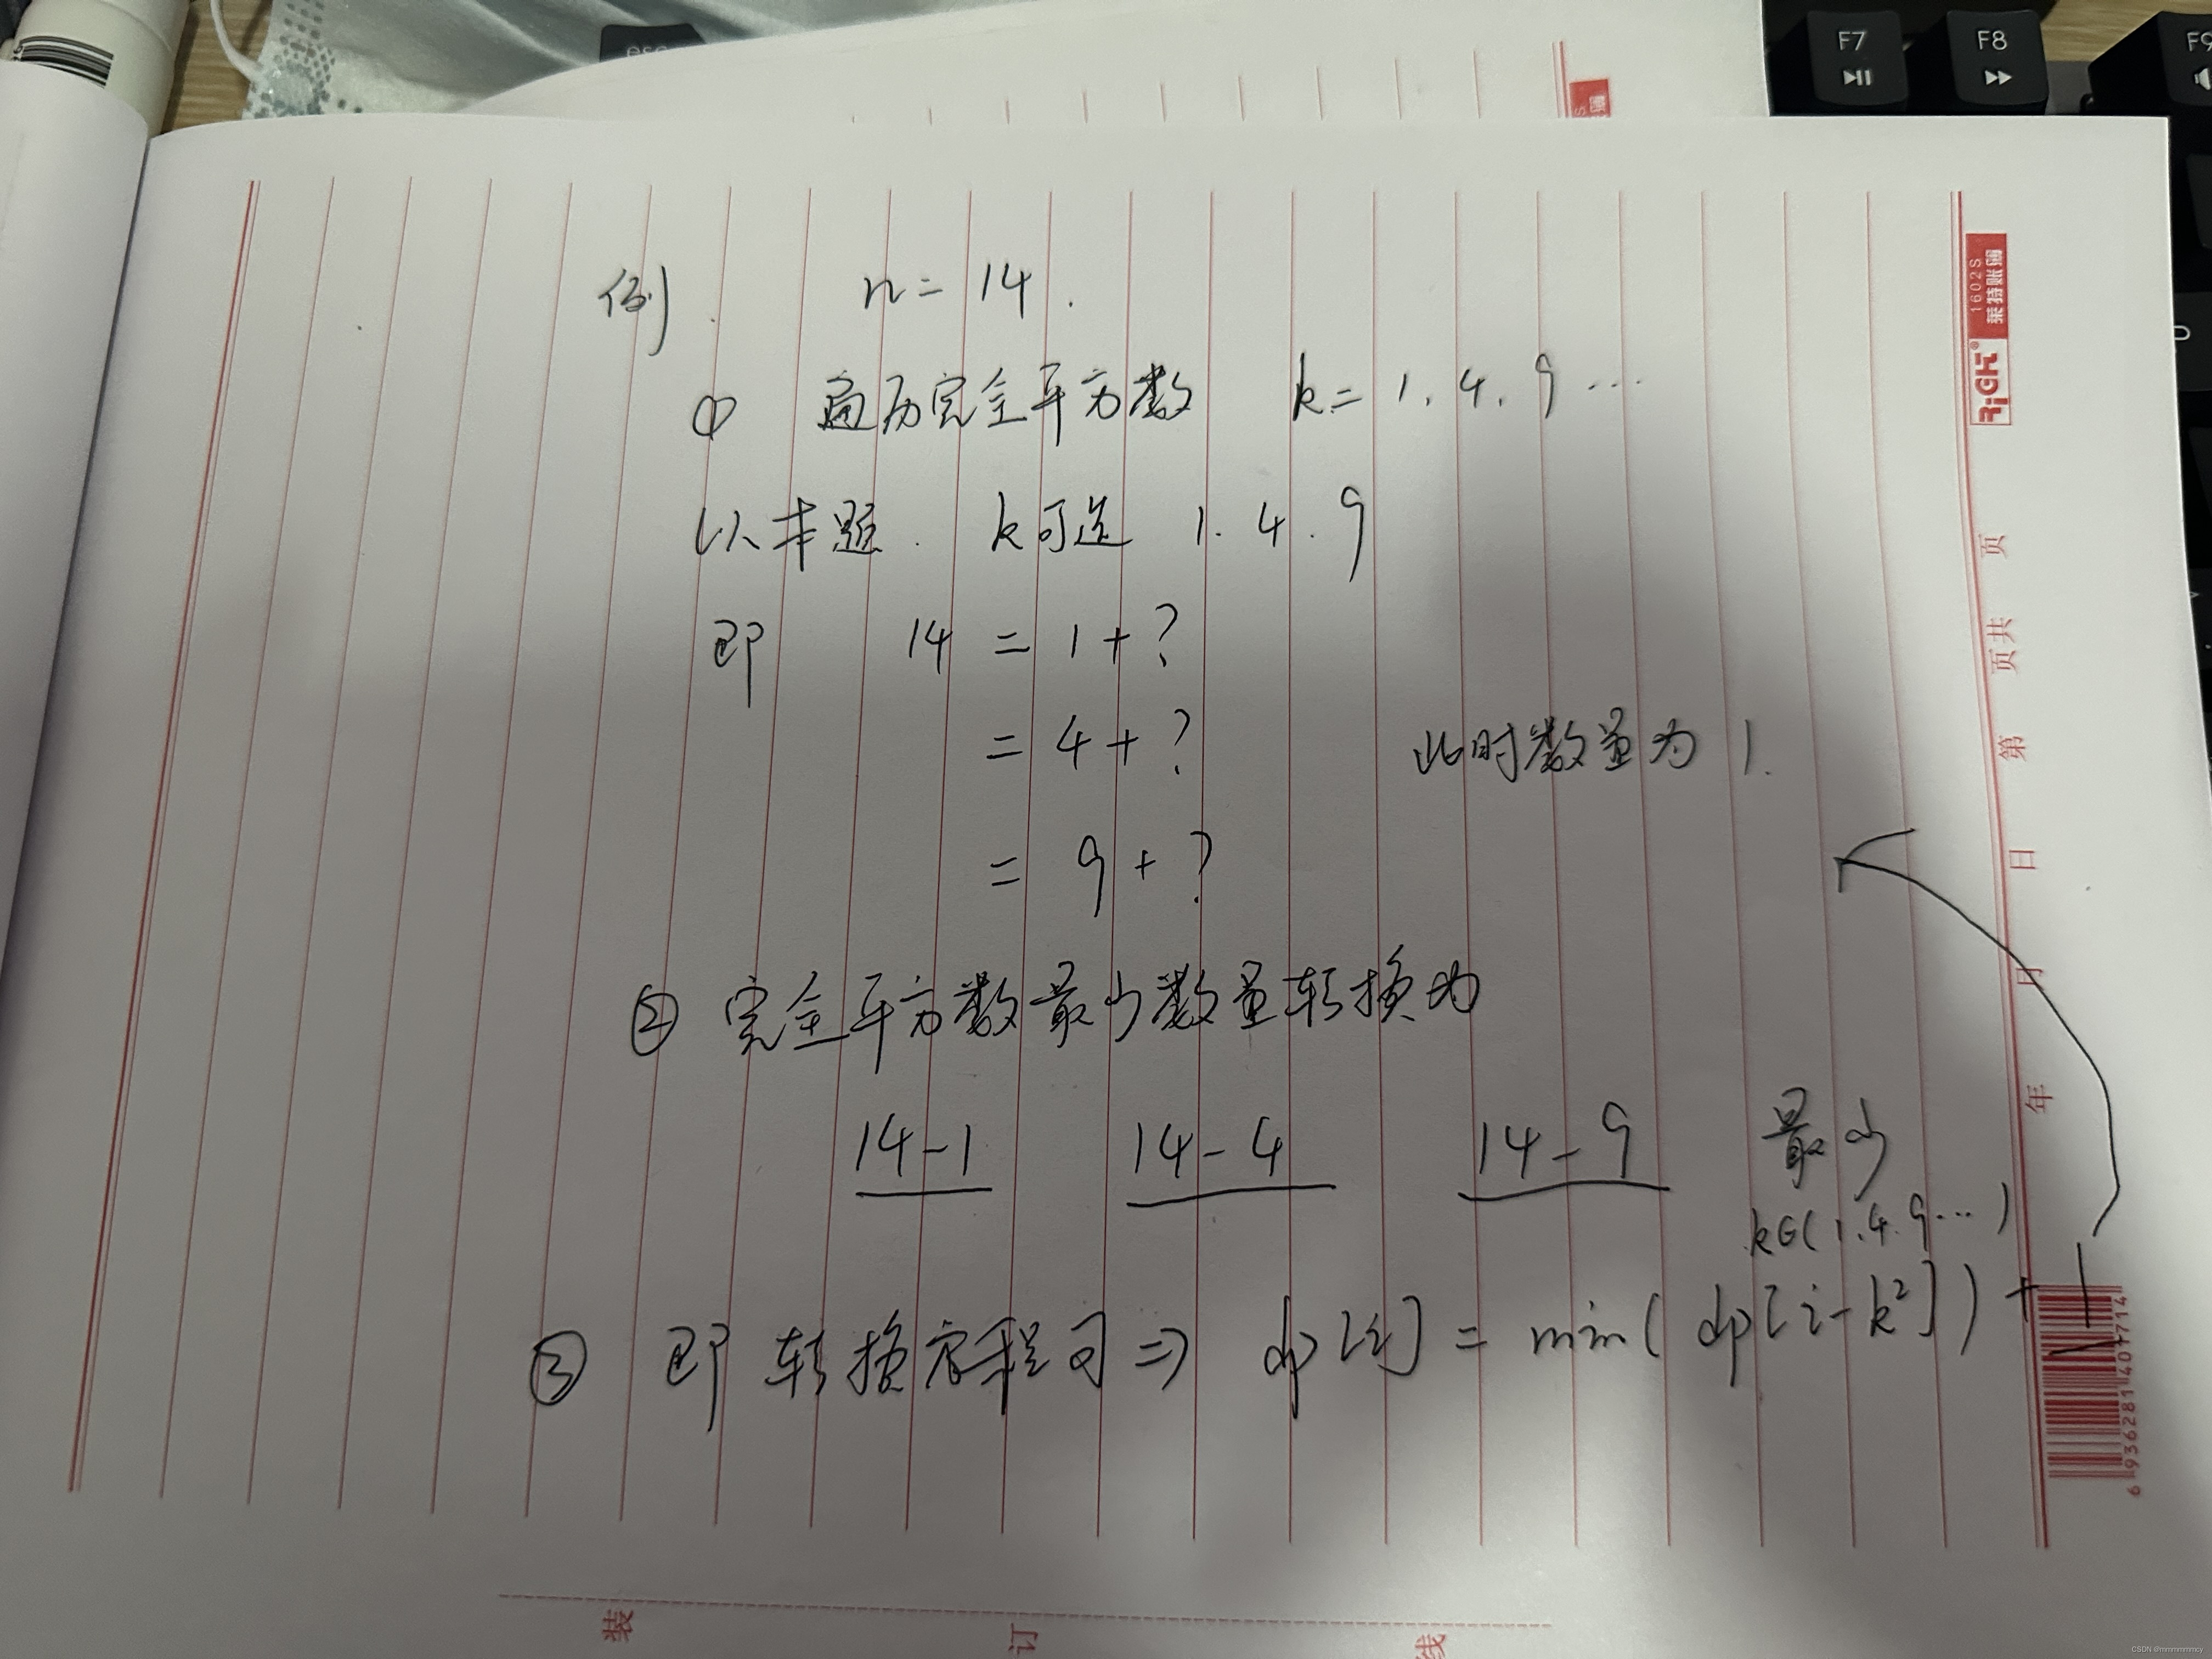 esc
F7
F8
F9
例. n = 14.
① 遍历完全平方数 k = 1. 4. 9 ...
以本题. k可选 1. 4. 9
即 14 = 1 + ?
= 4 + ? 此时数量为 1.
= 9 + ?
② 完全平方数最少数量转换为
14-1 14-4 14-9 最少
k∈(1.4.9...)
③ 即转换方程可 => dp[i] = min( dp[i-k²]) + 1
1602S
莱特账簿
RiGHT®
页
页共
第
日
月
年
6936281401714
装 订 线
CSDN @mmmmmmcy